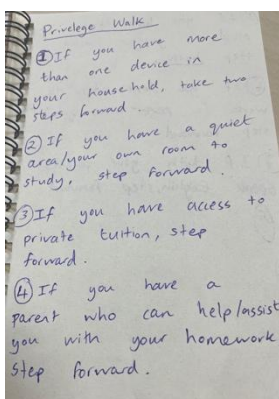 Privelege Walk
① If you have more
than one device in
your household, take two
steps forward
② If you have a quiet
area/your own room to
study, step forward.
③ If you have access to
private tuition, step
forward.
④ If you have a
parent who can help/assist
you with your homework
step forward.